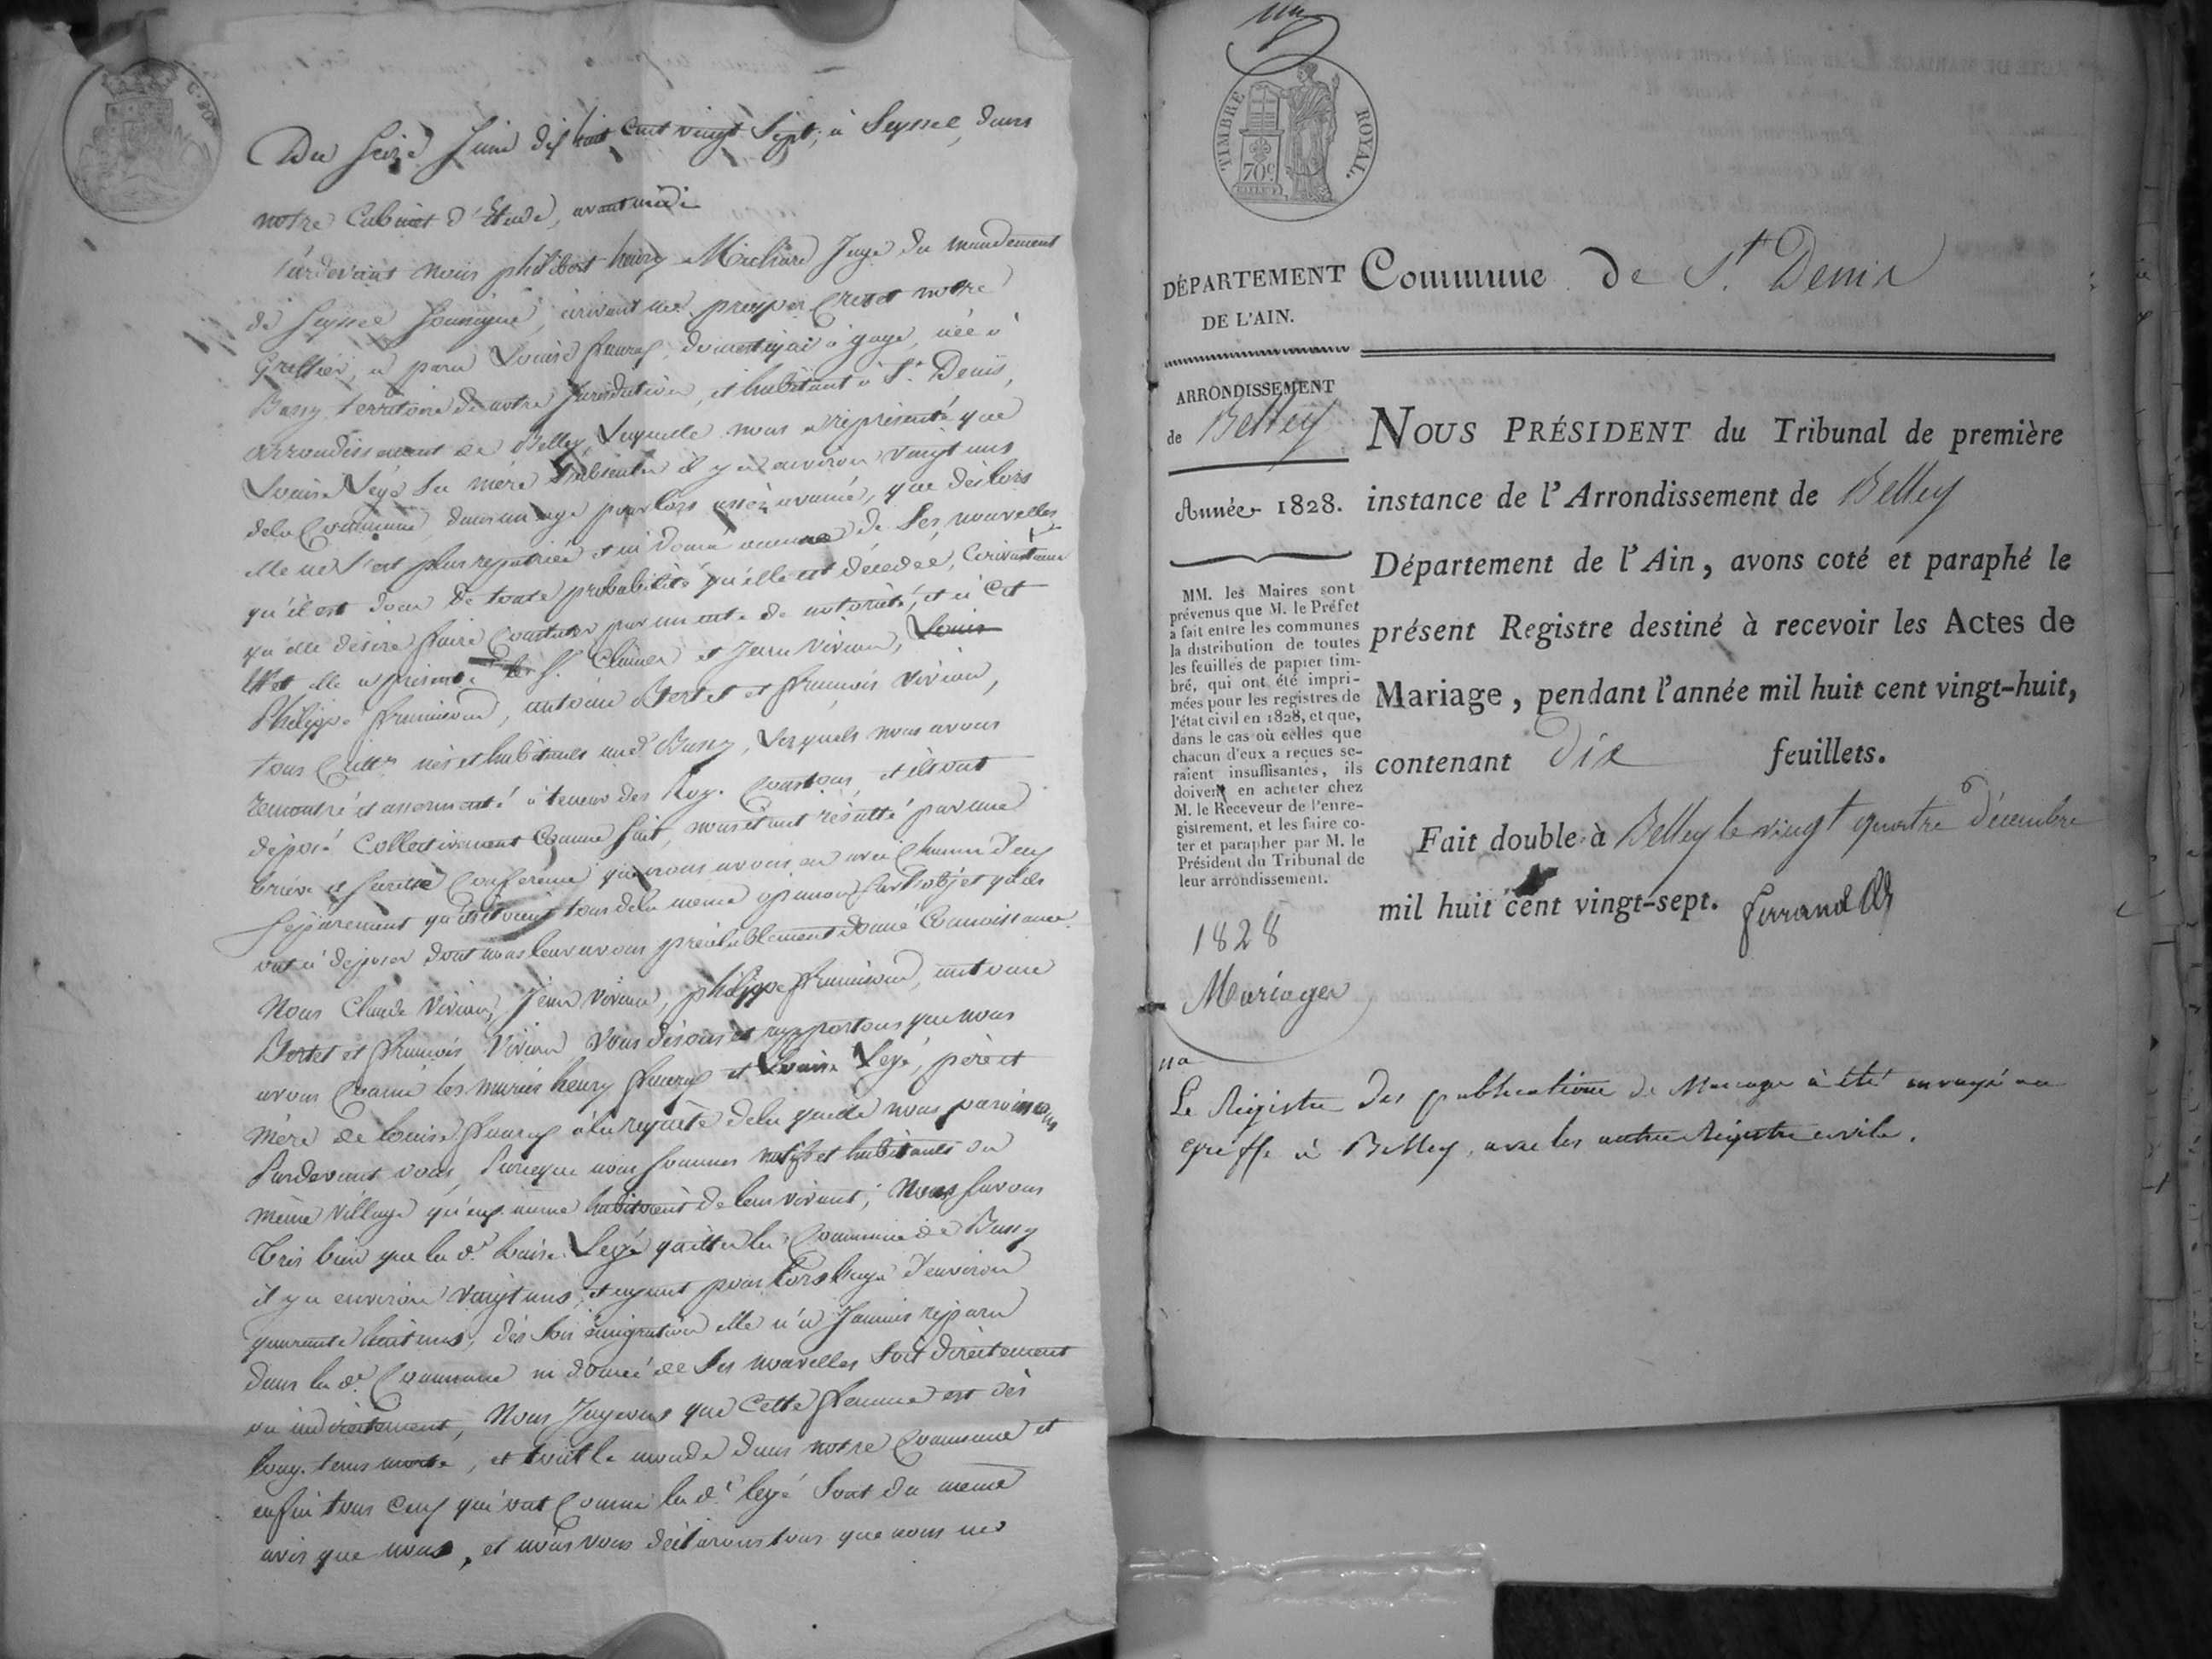 Du seize Juin dix huit Cent vingt Sept, à Seyssel, dans
notre Cabinet d'Etude, avant midi
Pardevant nous philibert henry Michard Juge du mandement
de Seyssel Soussigné, écrivant me. prosper Cretet notre
Greffier, a paru Louise Fauraz, domestique à gage, née à
Bassy territoire de notre Juridiction, et habitant à St. Denis,
arrondissement de Belley, Laquelle nous a représenté que
Louise Legé sa mère s'absenta il y a environ vingt ans
dela Commune, dans un age pour lors assez avancé, que dès lors
elle ne s'est plus repatriée et ni donné aucune de Ses nouvelles
qu'il est donc de toute probabilité qu'elle est décédée, Circonstance
qu'elle désire faire Constater par un acte de notoriété, et à Cet
effet elle a présenté les Srs. Claude et Jean Vivian, Louis
Philippe , antoine Bertet et François Vivian,
tous Cultrs. nés et habitants aud. Bassy, Lesquels nous avons
remontré et assermenté à teneur des Roy. Constons, et ils ont
déposé Collectivement Comme Suit, nous étant résulté par une
brieve et secrette Conférence que nous avons eu avec Chacun d'eux
Séparement qu'ils étoient tous dela meme opinion sur l'objet qu'ils
ont à déposer dont nous leur avons préalablement donné Connoissance.
Nous Claude Vivian, Jean Vivian, philippe , antoine
Bertet et François Vivian Vous disons et rapportons que nous
avons Connu les mariés henry Fauraz et Louise Legé, père et
mère de Louise Fauraz à la requete dela quelle nous paroissons
Pardevant vous, Parceque nous Sommes natifs et habitants du
même Village qu'eux même habitoient de leur vivant; Nous savons
très bien que la de. Louise Legé quitta la Commune de Bassy
il y a environ vingt ans, et ayant pour lors l'age d'environ
quarante huit ans, dès Son émigration elle n'a Jamais reparu
dans la de. Commune ni donné de Ses nouvelles Soit directement
ou indirectement, Nous Jugeons que Cette femme est dès
long-tems morte, et tout le monde dans notre Commune et
enfin tous Ceux qui ont Connu la de. legé Sont du même
avis que nous, et nous vous déclarons tous que nous ne
TIMBRE ROYAL.
70c.
DÉPARTEMENT
DE L'AIN.
Commune de St. Denis
ARRONDISSEMENT
de Belley
Année 1828.
MM. les Maires sont
prévenus que M. le Préfet
a fait entre les communes
la distribution de toutes
les feuilles de papier tim-
bré, qui ont été impri-
mées pour les registres de
l'état civil en 1828, et que,
dans le cas où celles que
chacun d'eux a reçues se-
raient insuffisantes, ils
doivent en acheter chez
M. le Receveur de l'enre-
gistrement, et les faire co-
ter et parapher par M. le
Président du Tribunal de
leur arrondissement.
NOUS PRÉSIDENT du Tribunal de première
instance de l'Arrondissement de Belley
Département de l'Ain, avons coté et paraphé le
présent Registre destiné à recevoir les Actes de
Mariage, pendant l'année mil huit cent vingt-huit,
contenant dix feuillets.
Fait double à Belley le vingt quatre Décembre
mil huit cent vingt-sept. Ferrand
1828
Mariages
na
Le Registre des publications de Mariage à été envoyé au
greffe à Belley, avec les autres Registres civils.